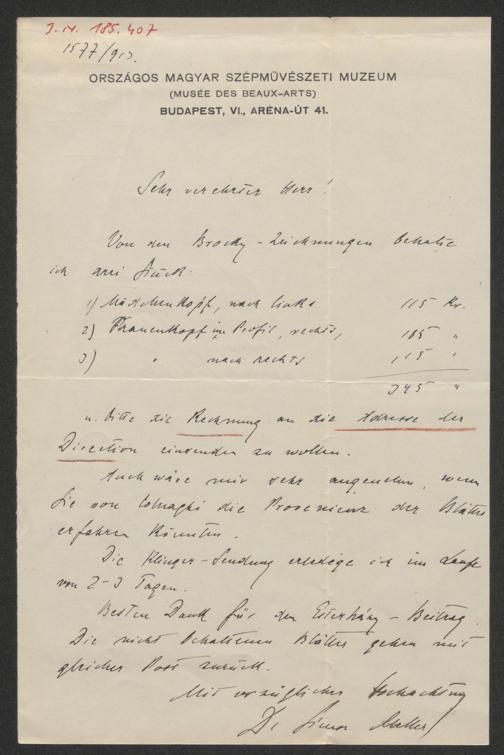 J.N. 185.407
1577/913.
ORSZÁGOS MAGYAR SZÉPMŰVÉSZETI MUZEUM
(MUSÉE DES BEAUX-ARTS)
BUDAPEST, VI., ARÉNA-ÚT 41.
Sehr verehrter Herr!
Von den Brocky-Zeichnungen behalte
ich drei Stück:
1) Mädchenkopf, nach links 115 Kr.
2) Frauenkopf im Profil, rechts, 185 "
3) " nach rechts 115 "
345 "
u. bitte die Rechnung an die Adresse der
Direction einsenden zu wollen.
Auch wäre mir sehr angenehm, wenn
Sie von Colnaghi die Provenienz der Blätter
erfahren könnten.
Die Klinger-Sendung erledige ich im Laufe
von 2-3 Tagen.
Besten Dank für den Esterházy-Beitrag.
Die nicht behaltenen Blätter gehen mit
gleicher Post zurück.
Mit vorzüglicher Hochachtung
Dr Simon Meller